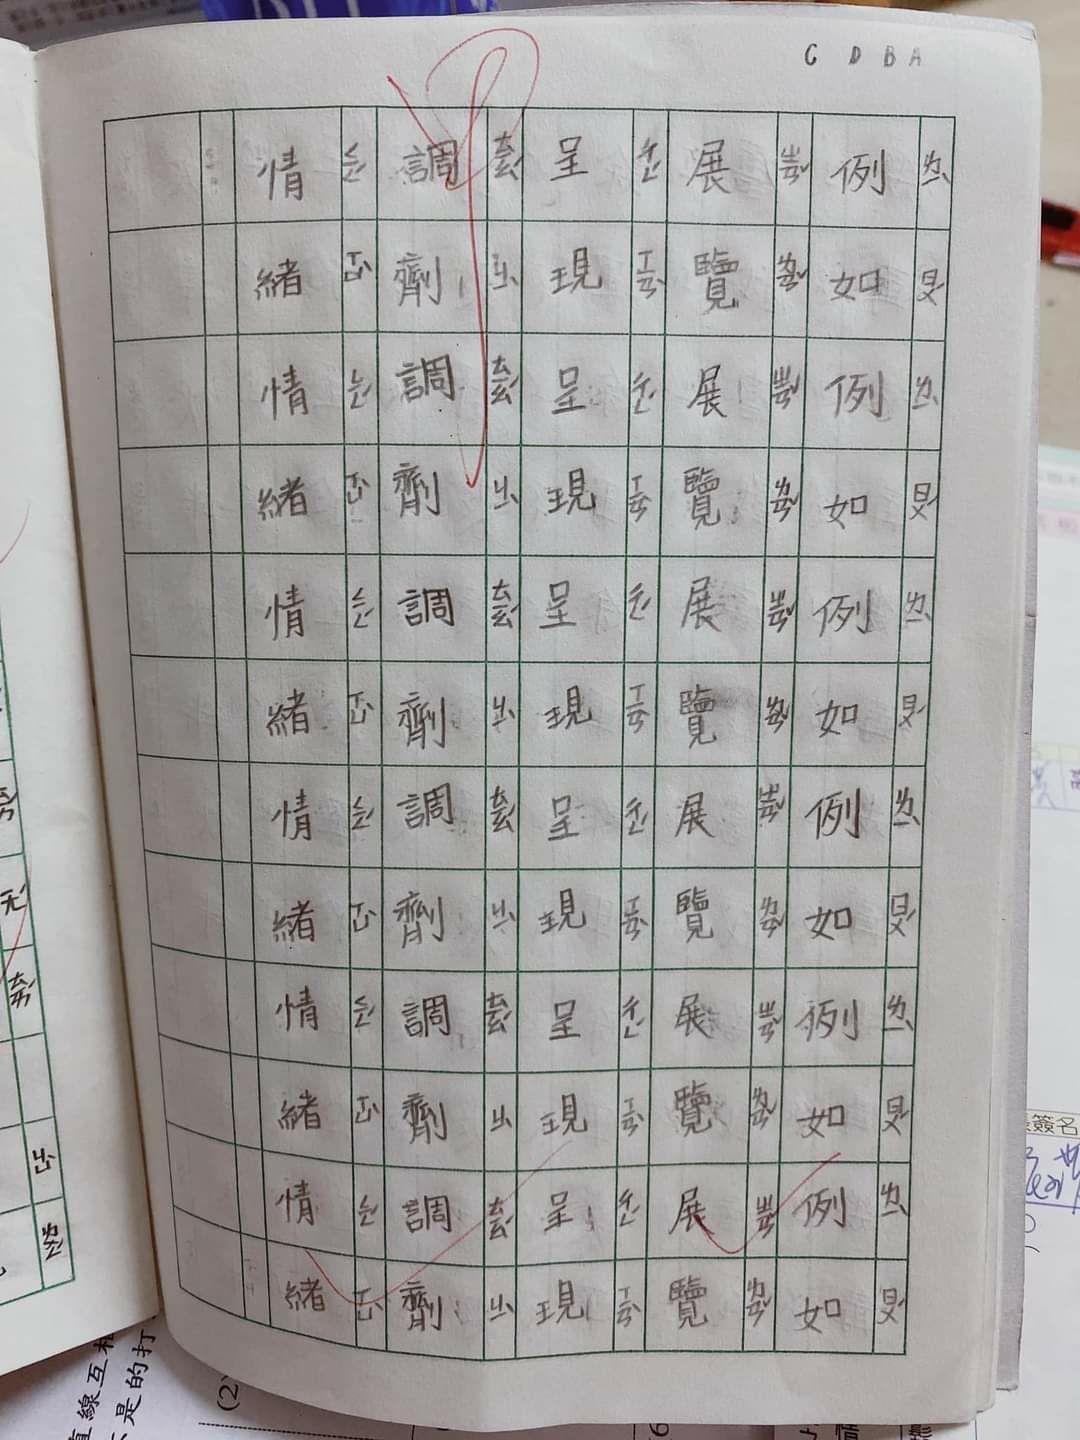 C D B A
例如例如例如例如例如例如
ㄌㄧˋㄖㄨˊㄌㄧˋㄖㄨˊㄌㄧˋㄖㄨˊㄌㄧˋㄖㄨˊㄌㄧˋㄖㄨˊㄌㄧˋㄖㄨˊ
展覽展覽展覽展覽展覽展覽
ㄓㄢˇㄌㄢˇㄓㄢˇㄌㄢˇㄓㄢˇㄌㄢˇㄓㄢˇㄌㄢˇㄓㄢˇㄌㄢˇㄓㄢˇㄌㄢˇ
呈現呈現呈現呈現呈現呈現
ㄔㄥˊㄒㄧㄢˋㄔㄥˊㄒㄧㄢˋㄔㄥˊㄒㄧㄢˋㄔㄥˊㄒㄧㄢˋㄔㄥˊㄒㄧㄢˋㄔㄥˊㄒㄧㄢˋ
調劑調劑調劑調劑調劑調劑
ㄊㄧㄠˊㄐㄧˋㄊㄧㄠˊㄐㄧˋㄊㄧㄠˊㄐㄧˋㄊㄧㄠˊㄐㄧˋㄊㄧㄠˊㄐㄧˋㄊㄧㄠˊㄐㄧˋ
情緒情緒情緒情緒情緒情緒
ㄑㄧㄥˊㄒㄩˋㄑㄧㄥˊㄒㄩˋㄑㄧㄥˊㄒㄩˋㄑㄧㄥˊㄒㄩˋㄑㄧㄥˊㄒㄩˋㄑㄧㄥˊㄒㄩˋ
簽名
直線互相
是的打
(2)